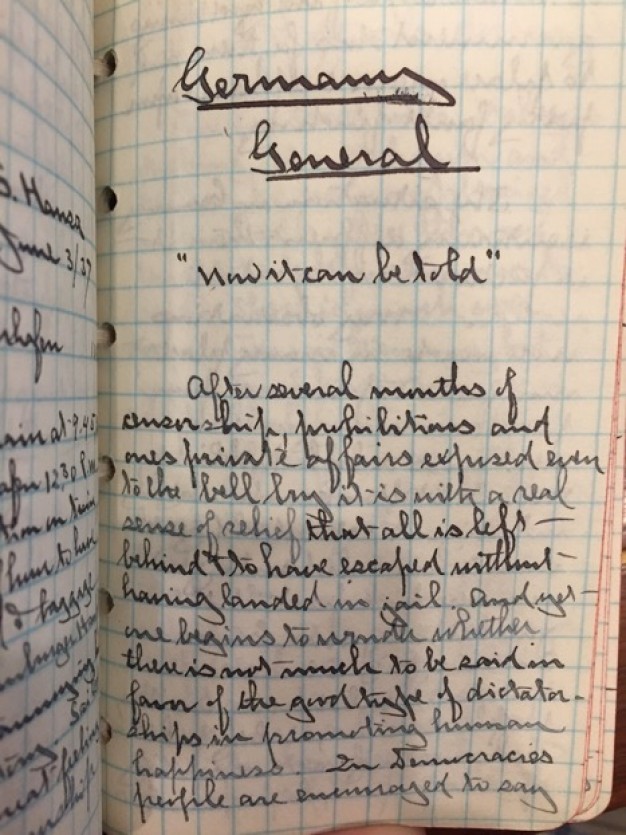 Germany
General
"Now it can be told"
After several months of
censorship, prohibitions and
ones private affairs exposed even
to the bell boy it is with a real
sense of relief that all is left
behind & to have escaped without
having landed in jail. And yet
one begins to wonder whether
there is not much to be said in
favor of the good type of dictator-
ships in promoting human
happiness. In Democracies
people are encouraged to say
S. Hansa
June 3/37
12³⁰ P.M.
baggage